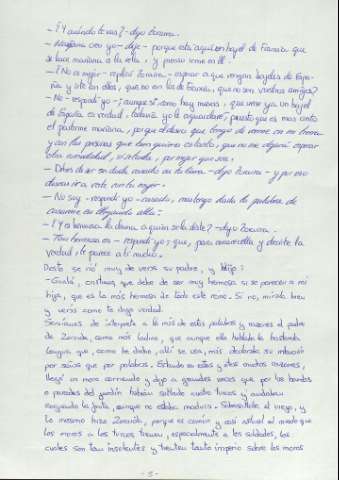 — ¿Y cuándo te vas? – dijo Zoraida.
— Mañana creo yo – dije – porque está aquí un bajel de Francia que
se hace mañana a la vela, y pienso irme en él.
— ¿No es mejor – replicó Zoraida – esperar a que vengan bajeles de Espa-
ña y irte con ellos, que no en los de Francia, que no son vuestros amigos?
— No – respondí yo –; aunque si como hay nuevas, que viene ya un bajel
de España es verdad, todavía yo le aguardaré, puesto que es más cierto
el partirme mañana, porque el deseo que tengo de verme en mi tierra
y con las personas que bien quiero es tanto, que no me dejará esperar
otra comodidad, si se tarda, por mejor que sea.
— Debes de ser sin duda casado en tu tierra – dijo Zoraida – y por eso
deseas ir a verte con tu mujer.
— No soy – respondí yo – casado, mas tengo dada la palabra de
casarme en llegando allá.
— ¿Y es hermosa la dama a quien se la diste? – dijo Zoraida.
— Tan hermosa es – respondí yo –, que, para encarecella y decirte la
verdad, te parece a ti mucho.
Desto se rió muy de veras su padre, y dijo:
– Gualá, cristiano, que debe de ser muy hermosa si se parece a mi
hija, que es la más hermosa de todo este reino. Si no, mírala bien
y verás como te digo verdad.
Servíanos de intérprete a lo más de estas palabras y razones el padre
de Zoraida, como más ladino, que aunque ella hablaba la bastarda
lengua que, como he dicho, allí se usa, más declaraba su intención
por señas que por palabras. Estando en estas y otras muchas razones,
llegó un moro corriendo y dijo a grandes voces que por las bardas
o paredes del jardín habían saltado cuatro turcos y andaban
cogiendo la fruta, aunque no estaba madura. Sobresaltóse el viejo, y
lo mesmo hizo Zoraida, porque es común y casi natural el miedo que
los moros a los turcos tienen, especialmente a los soldados, los
cuales son tan insolentes y tienen tanto imperio sobre los moros
- 5 -